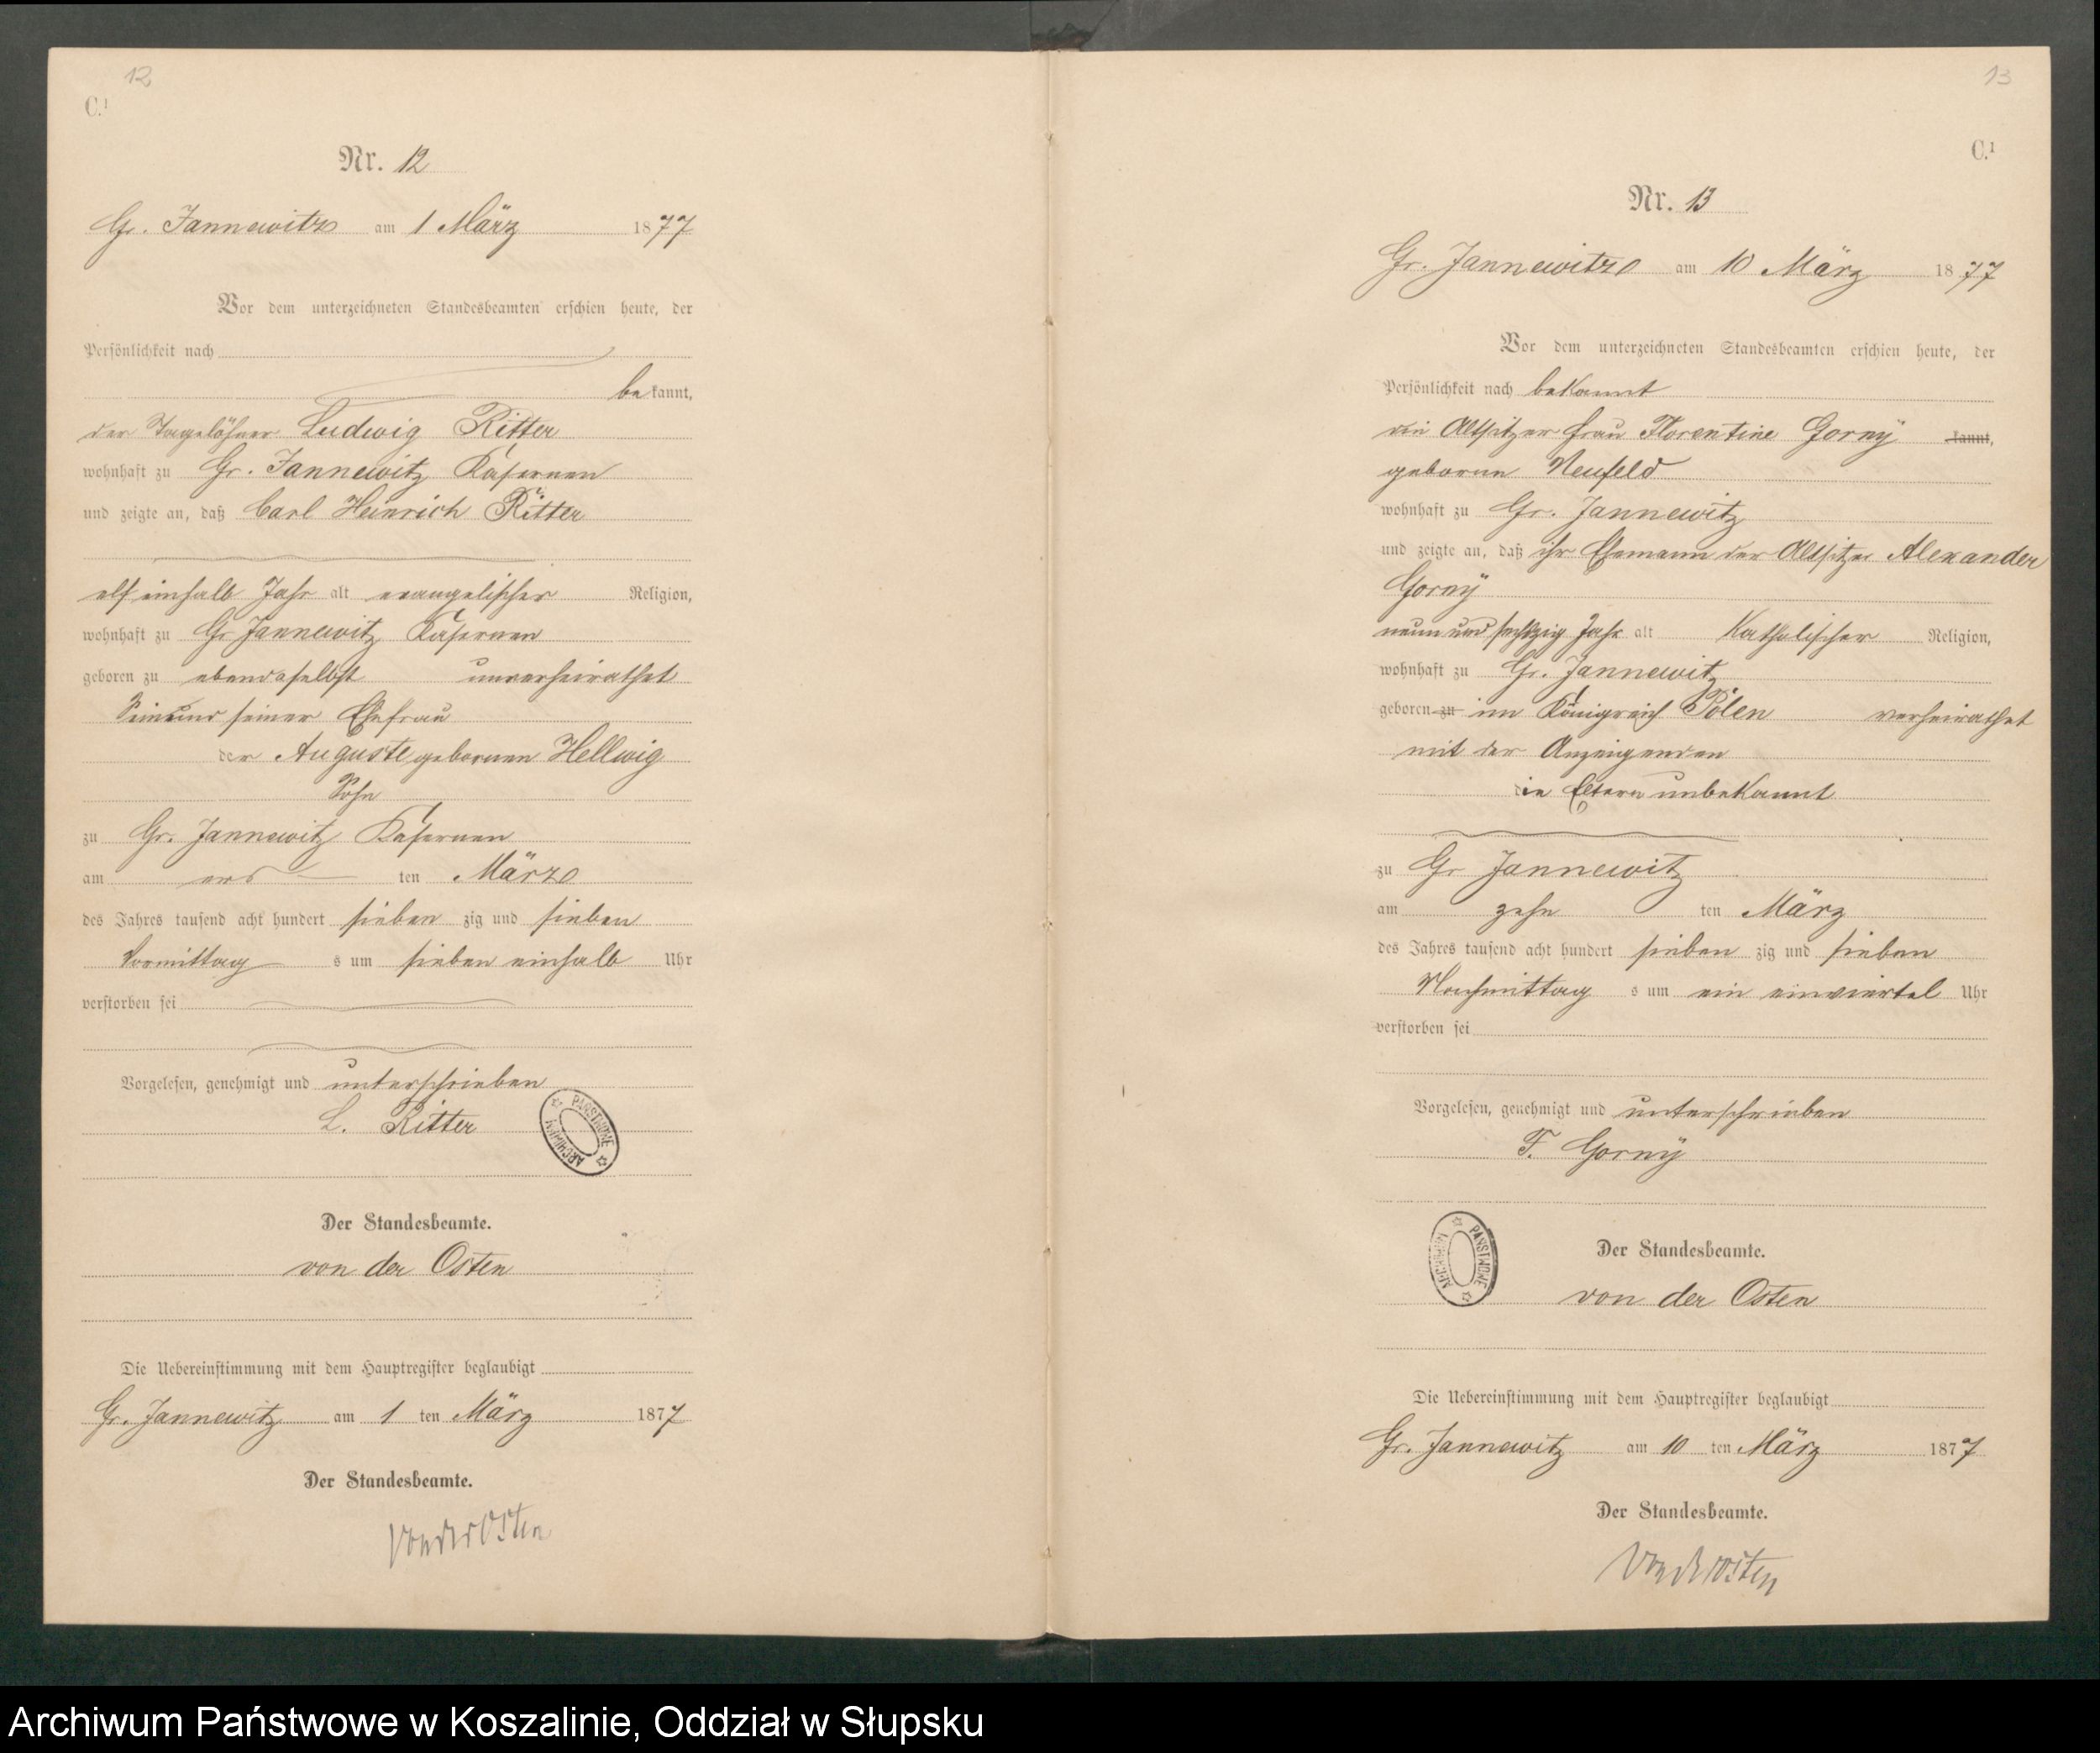 12
C.¹
Nr. 12
Gr. Jannewitz am 1 März 1877
Vor dem unterzeichneten Standesbeamten erschien heute, der
Persönlichkeit nach
bekannt,
der Tagelöhner Ludwig Ritter
wohnhaft zu Gr. Jannewitz Kasernen
und zeigte an, daß Carl Heinrich Ritter
elf einhalb Jahr alt evangelischer Religion,
wohnhaft zu Gr Jannewitz Kasernen
geboren zu ebendaselbst unverheirathet
Sein und seiner Ehefrau
der Auguste gebornen Hellwig
Sohn
zu Gr. Jannewitz Kasernen
am ers ten März
des Jahres tausend acht hundert sieben zig und sieben
Vormittag s um sieben einhalb Uhr
verstorben sei
Vorgelesen, genehmigt und unterschrieben
L. Ritter
ARCHIWUM PAŃSTWOWE
Der Standesbeamte.
von der Osten
Die Uebereinstimmung mit dem Hauptregister beglaubigt
Gr. Jannewitz am 1 ten März 1877
Der Standesbeamte.
von der Osten
13
C.¹
Nr. 13
Gr. Jannewitz am 10 März 1877
Vor dem unterzeichneten Standesbeamten erschien heute, der
Persönlichkeit nach bekannt
die Altsitzer frau Florentine Gorny kannt,
geborne Neufeld
wohnhaft zu Gr. Jannewitz
und zeigte an, daß ihr Ehemann der Altsitzer Alexander
Gorny
neun und sechszig Jahr alt Katholischer Religion,
wohnhaft zu Gr. Jannewitz
geboren zu im Königreich Polen verheirathet
mit der Anzeigenden
die Eltern unbekannt
zu Gr Jannewitz
am zehn ten März
des Jahres tausend acht hundert sieben zig und sieben
Nachmittag s um ein einviertel Uhr
verstorben sei
Vorgelesen, genehmigt und unterschrieben
F. Gorny
ARCHIWUM PAŃSTWOWE
Der Standesbeamte.
von der Osten
Die Uebereinstimmung mit dem Hauptregister beglaubigt
Gr. Jannewitz am 10 ten März 1877
Der Standesbeamte.
von der Osten
Archiwum Państwowe w Koszalinie, Oddział w Słupsku